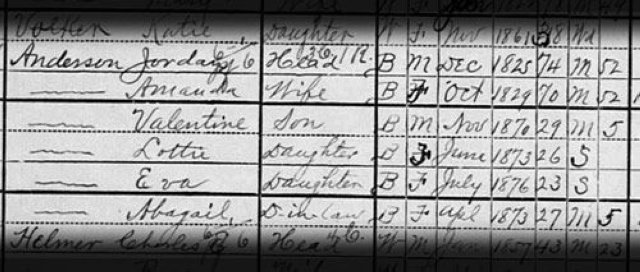 Volker Katie Daughter W F Nov 1861 38 Wd
Anderson Jordan Head B M Dec 1825 74 M 52
— Amanda Wife B F Oct 1829 70 M 52
— Valentine Son B M Nov 1870 29 M 5
— Lottie Daughter B F June 1873 26 S
— Eva Daughter B F July 1876 23 S
— Abagail D-in-law B F Apl 1873 27 M 5
Helmer Charles Head W M 1857 43 M 23